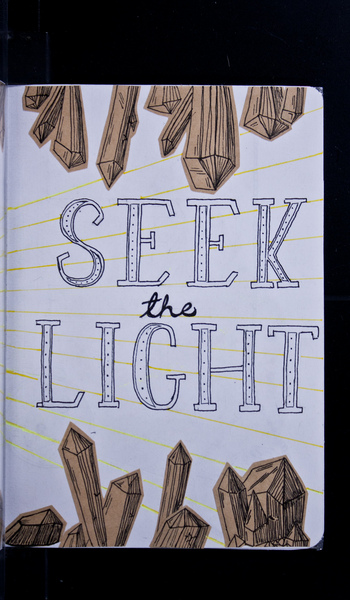 SEEK
the
LIGHT